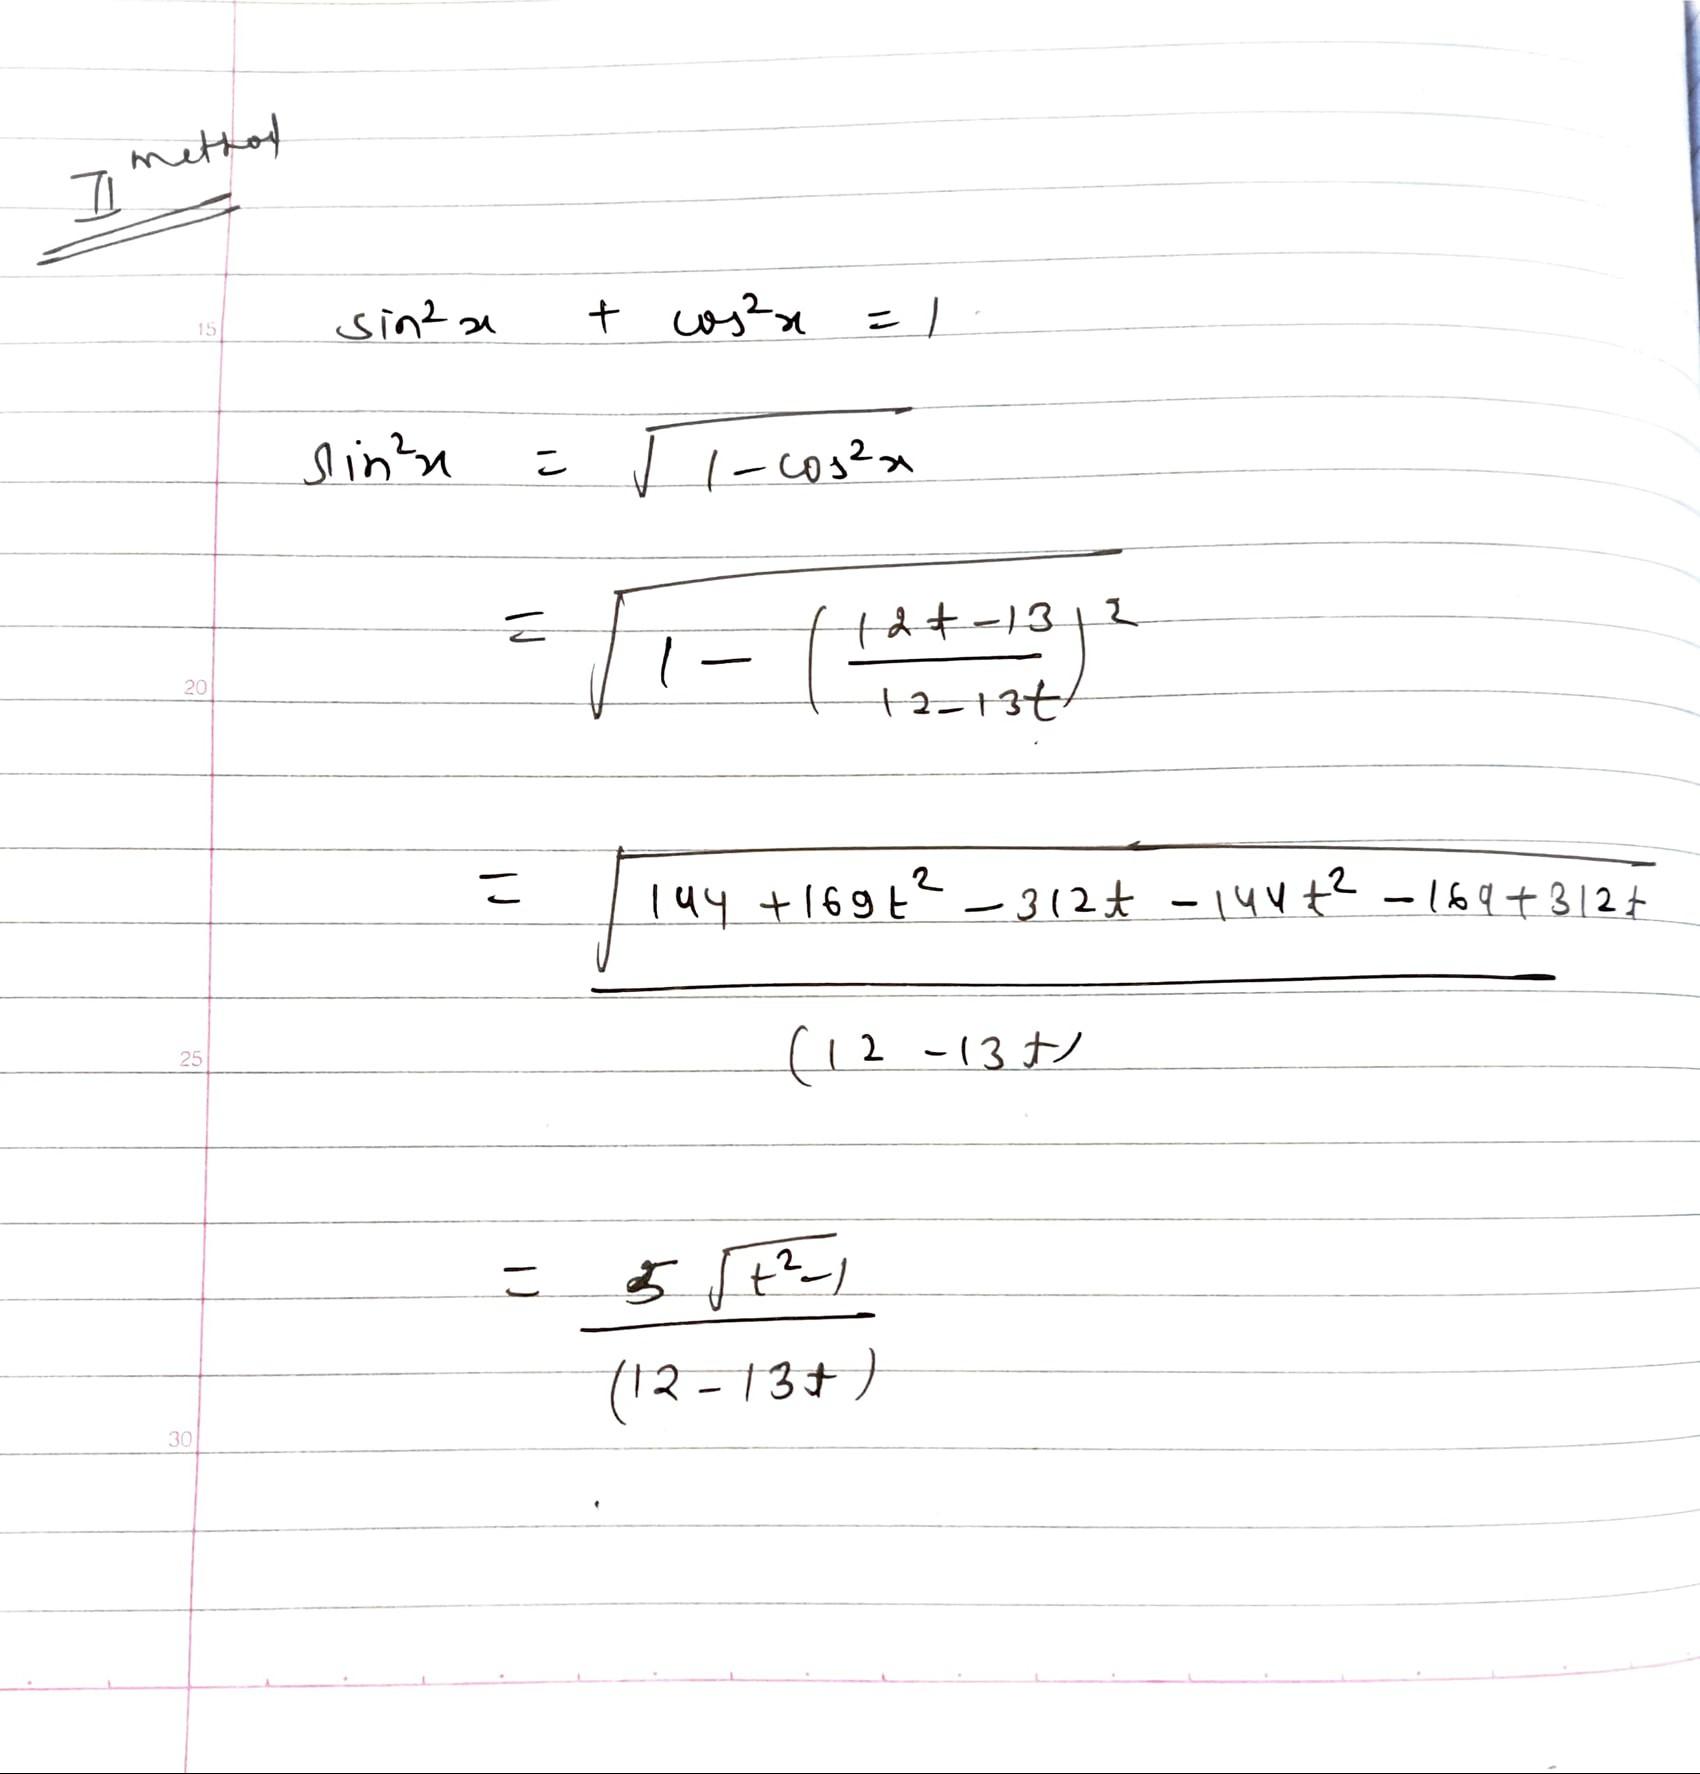 II method
sin²x + cos²x = 1
15
sin²x = √(1-cos²x)
= √(1 - ((12t-13)/(12-13t))²)
20
= √(144 + 169t² - 312t - 144t² - 169 + 312t)
(12 - 13t)
25
= 5√(t²-1)
(12-13t)
30